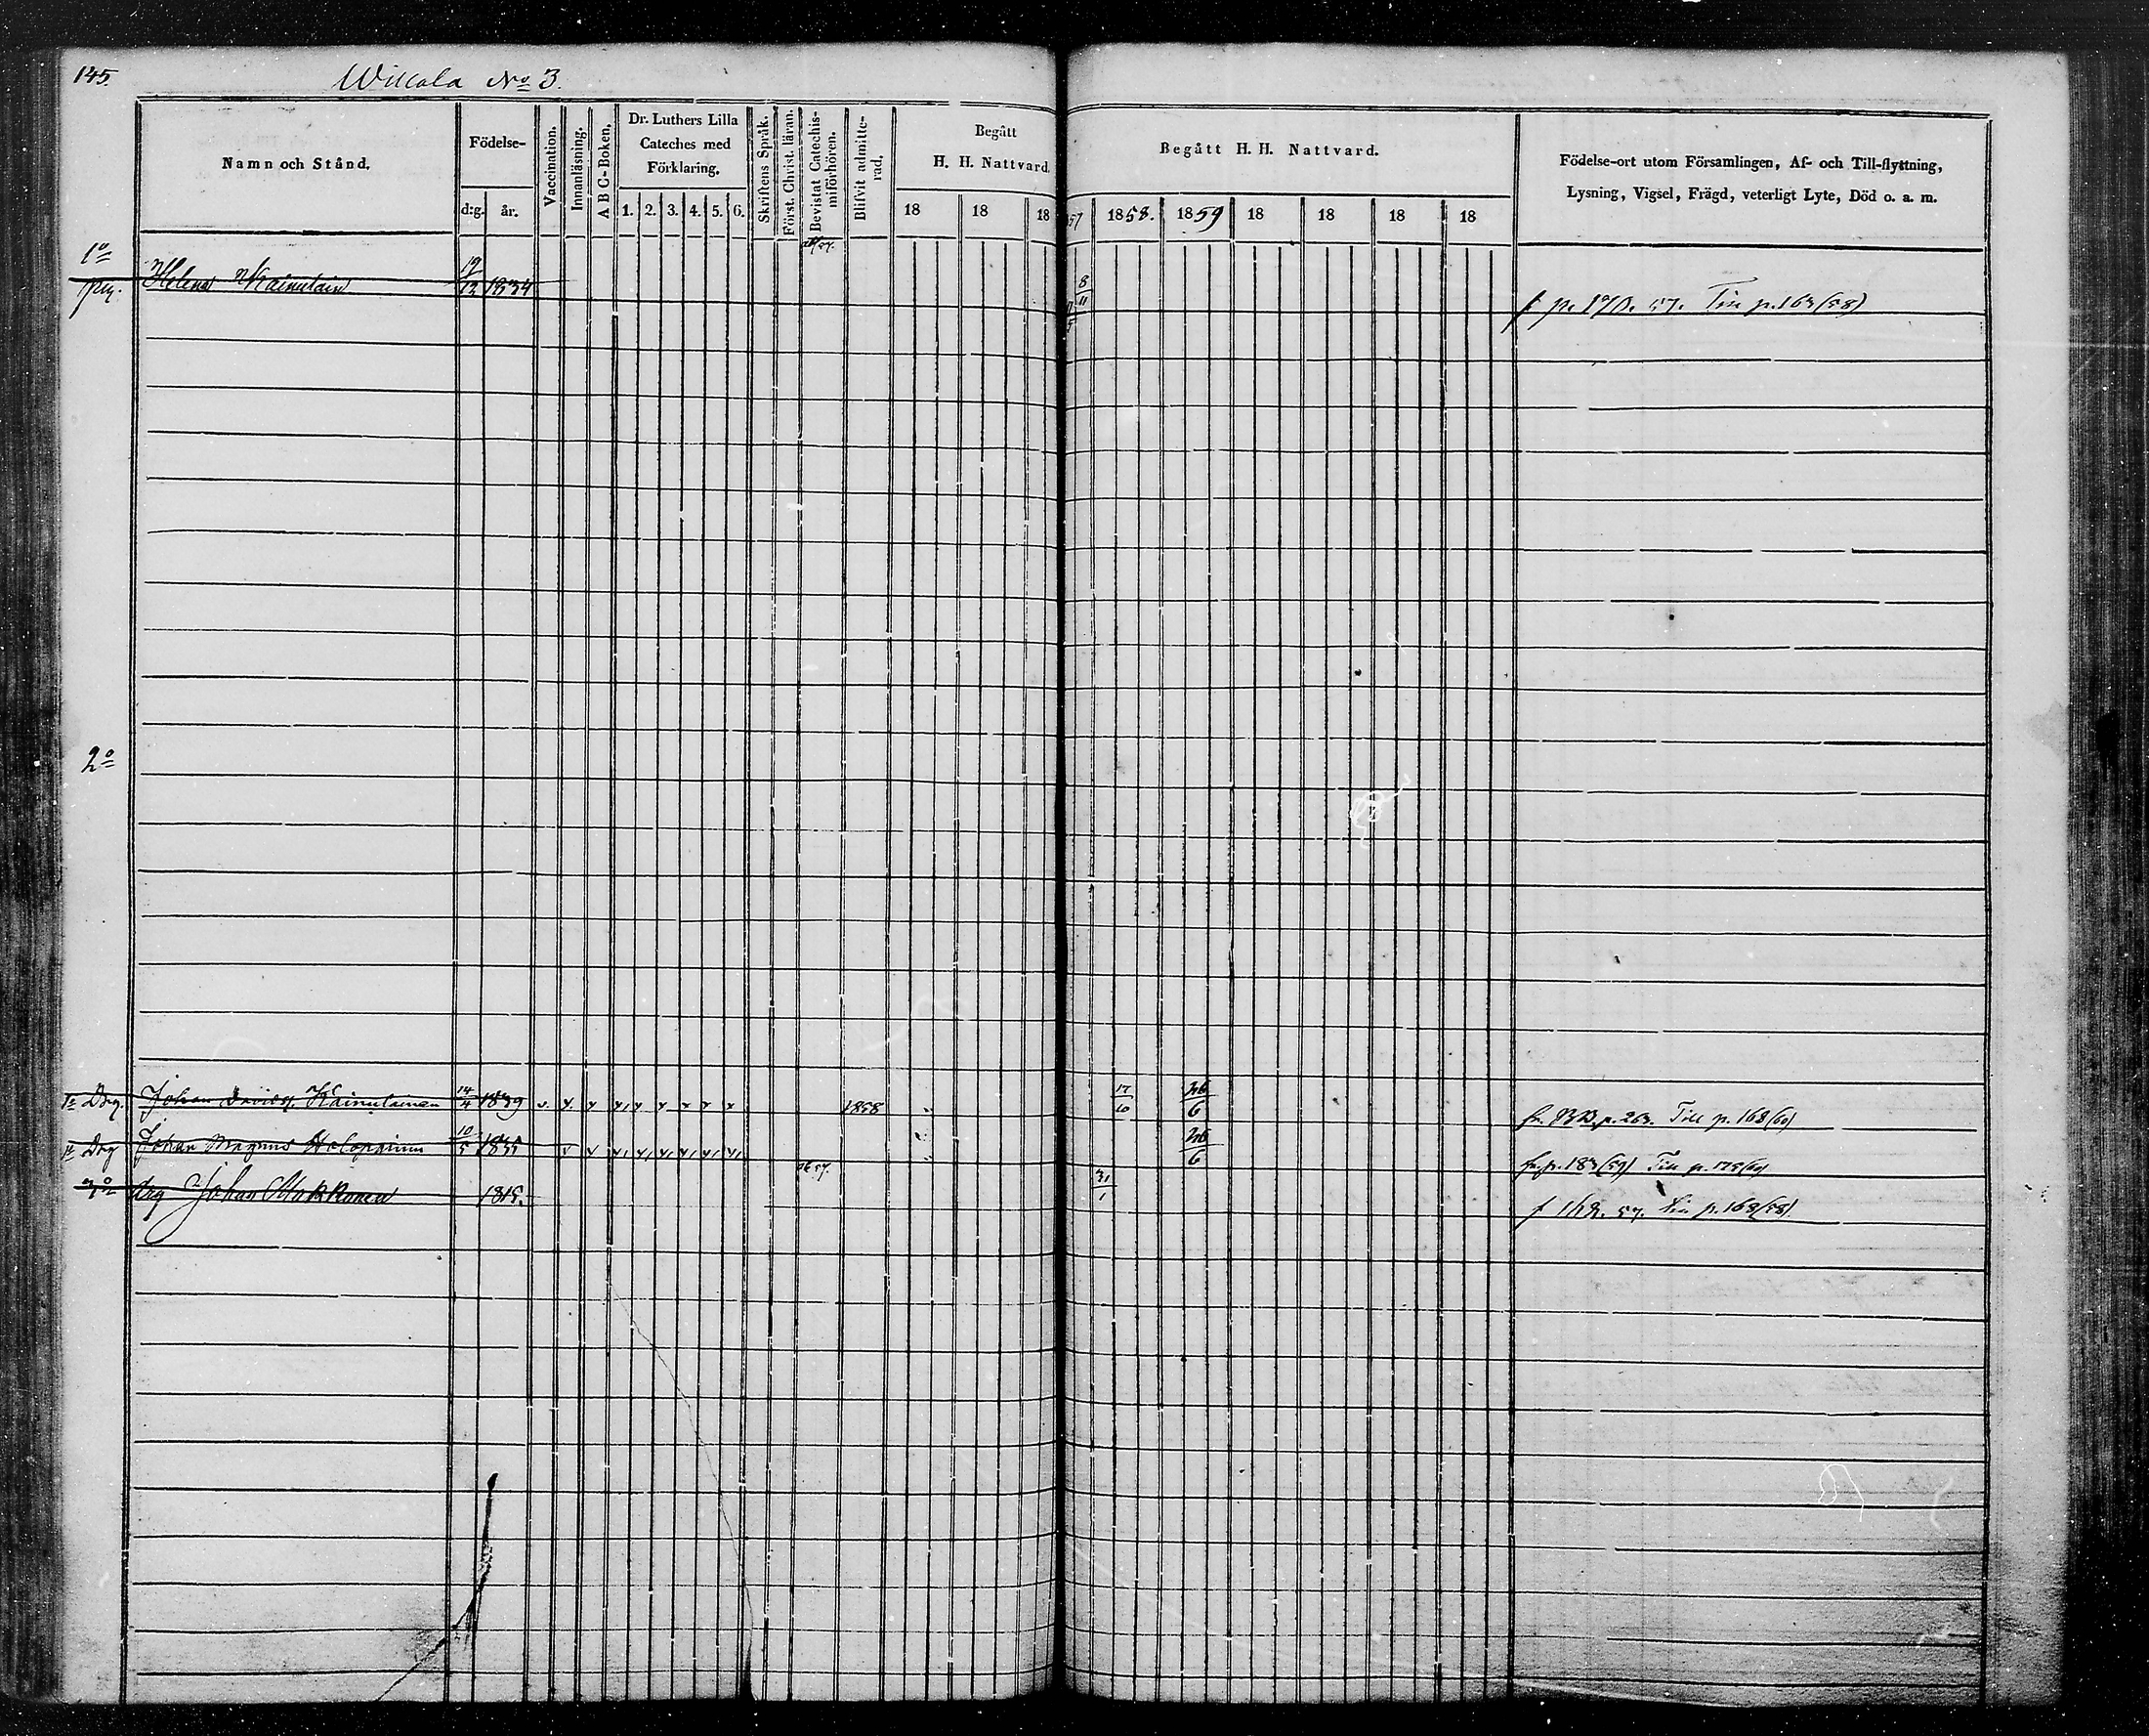 145.
Willala No 3.
Namn och Stånd.
Födelse-
d:g.
år.
Vaccination.
Innanläsning.
A B C-Boken.
Dr. Luthers Lilla
Cateches med
Förklaring.
1. 2. 3. 4. 5. 6.
Skriftens Språk.
Först. Christ. läran.
Bevistat Catechis-
miförhören.
Blifvit admitte-
rad.
Begått
H. H. Nattvard.
18 18 18
Begått H. H. Nattvard.
57 1858. 1859 18 18 18 18
Födelse-ort utom Församlingen, Af- och Till-flyttning,
Lysning, Vigsel, Frägd, veterligt Lyte, Död o. a. m.
1o
pig. Helena Kainulain 19/12 1834 8/11 f p. 170. 57. Till p. 163 (58)
2o
Drg. Johan Davids. Kainulainen 14/4 1839 1858 17/10 26/6 fr. BB. p. 263. Till p. 168 (60)
Drg Johan Magnus Holopainen 10/5 1835 26/6 fr. p. 183 (59) Till p. 175 (60)
drg Johan Mokkonen 1815. 31/1 57. Till p. 168 (58)